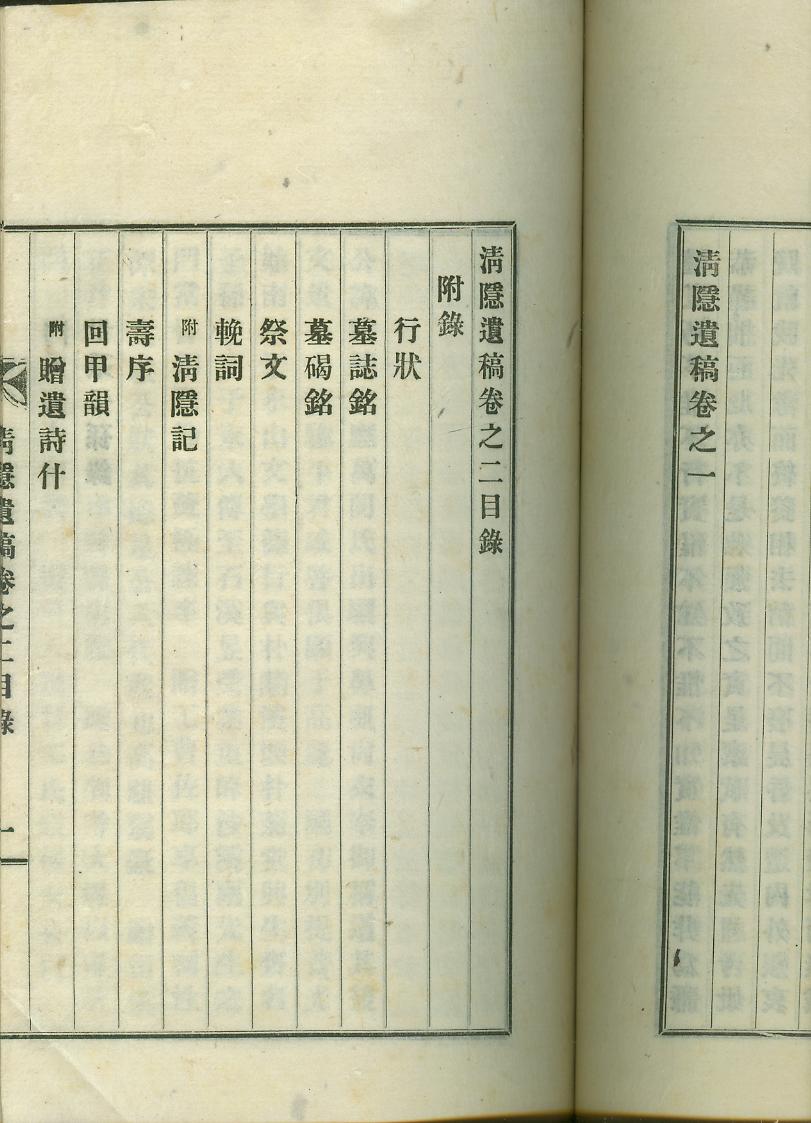 淸隱遺稿卷之一
淸隱遺稿卷之二目錄
附錄
行狀
墓誌銘
墓碣銘
祭文
輓詞
附 淸隱記
壽序
回甲韻
附 贈遺詩什
淸隱遺稿卷之二目錄 一